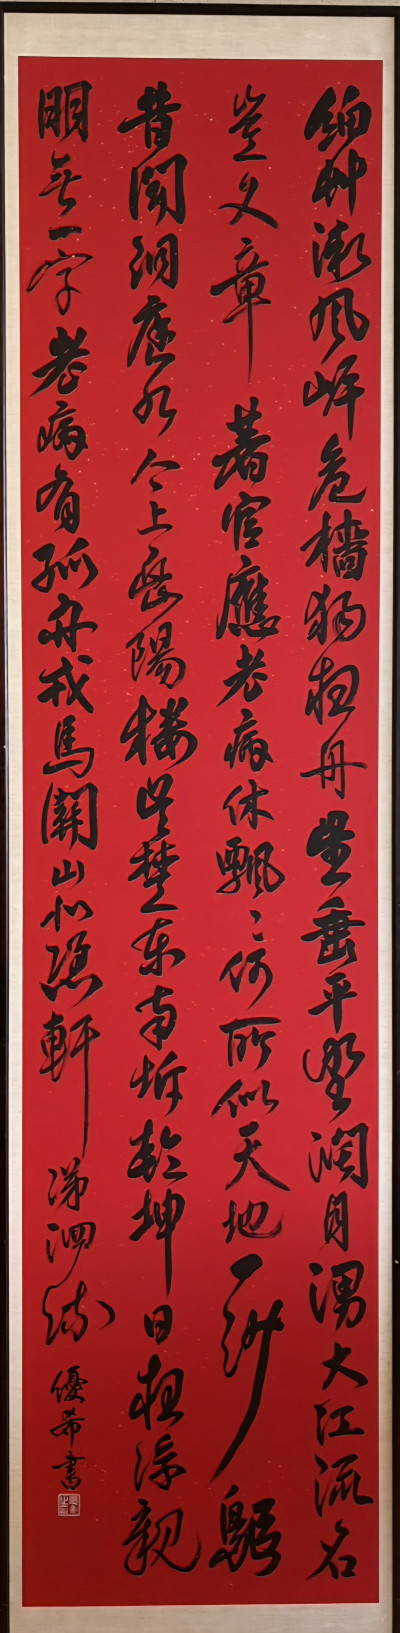 細艸微風岸危檣獨夜舟星垂平野闊月湧大江流名
豈文章著官應老病休飄〻何所似天地一沙鷗
昔聞洞庭水今上岳陽樓吳楚東南坼乾坤日夜浮親
朋無一字老病有孤舟戎馬關山北憑軒涕泗流
優希書